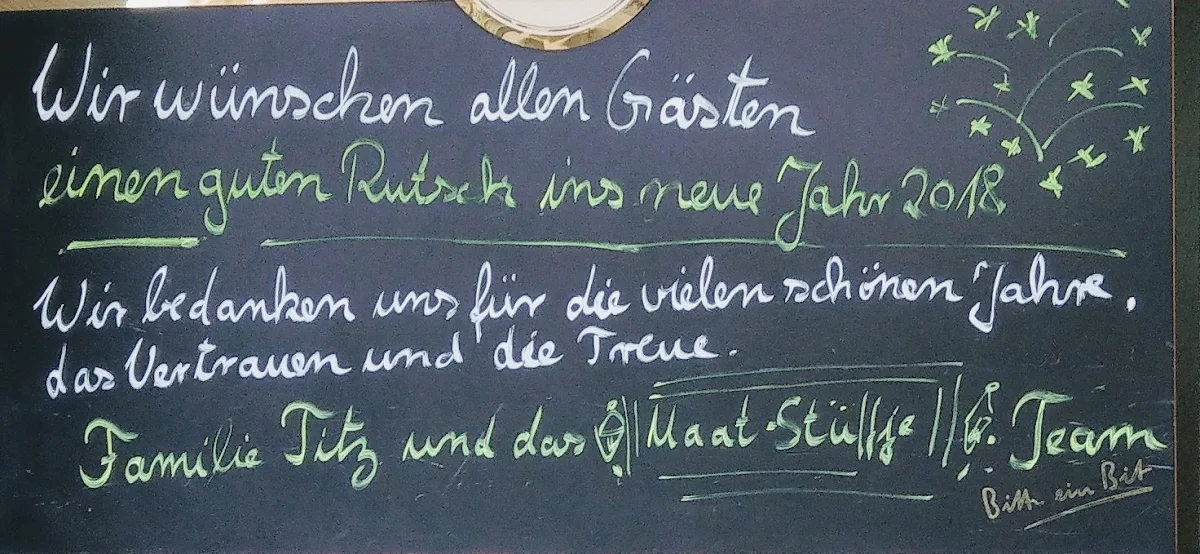 Wir wünschen allen Gästen
einen guten Rutsch ins neue Jahr 2018
Wir bedanken uns für die vielen schönen Jahre,
das Vertrauen und die Treue.
Familie Titz und das Maat-Stüffje Team
Bitte ein Bit